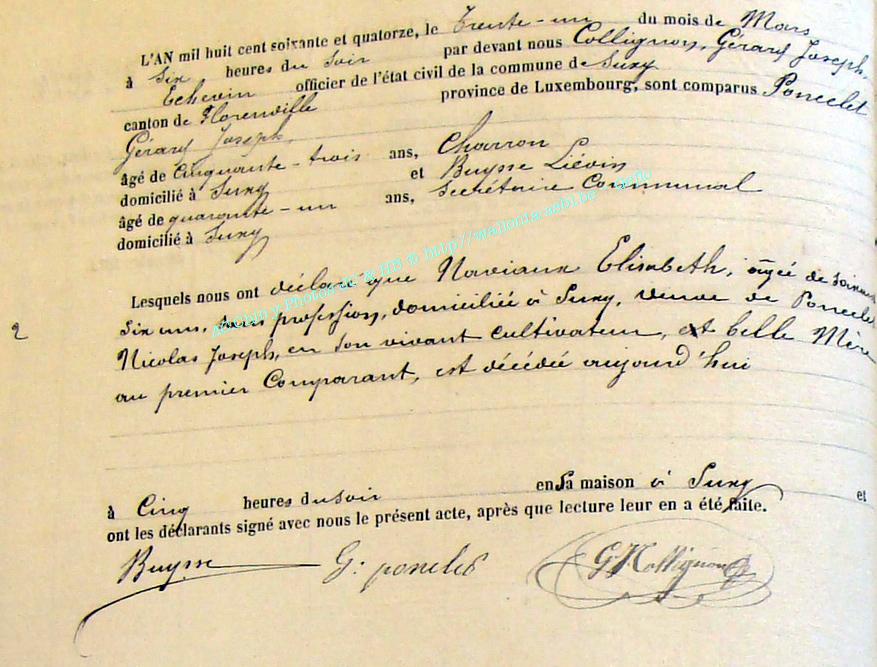 L'AN mil huit cent soixante et quatorze, le Trente-un du mois de Mars
à Six heures du Soir par devant nous Collignon, Gérard Joseph,
Echevin officier de l'état civil de la commune de Suxy
canton de Florenville province de Luxembourg, sont comparus Poncelet
Gérard Joseph,
âgé de Cinquante-trois ans, Charron
domicilié à Suxy et Buysse Liévin
âgé de quarante-un ans, Secrétaire Communal
domicilié à Suxy
Lesquels nous ont déclaré que Naviaux Elisabeth, âgée de Soixante
2
Six ans, sans profession, domiciliée à Suxy, veuve de Poncelet
Nicolas Joseph, en son vivant cultivateur, et belle Mère
au premier Comparant, est décédée aujourd'hui
à Cinq heures du soir en sa maison à Suxy et
ont les déclarants signé avec nous le présent acte, après que lecture leur en a été faite.
Buysse G: poncelet G J Collignon